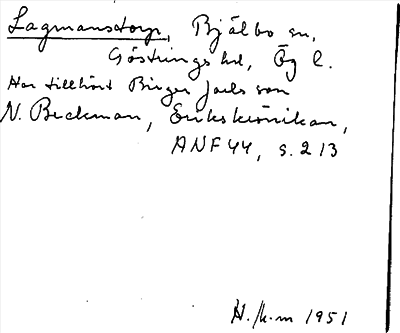 Lagmanstorp, Bjälbo sn,
Göstrings hd, Ög l.
Har tillhört Birger Jarls son
N. Beckman, Erikskrönikan,
ANF 44, s. 213
H./k.m 1951